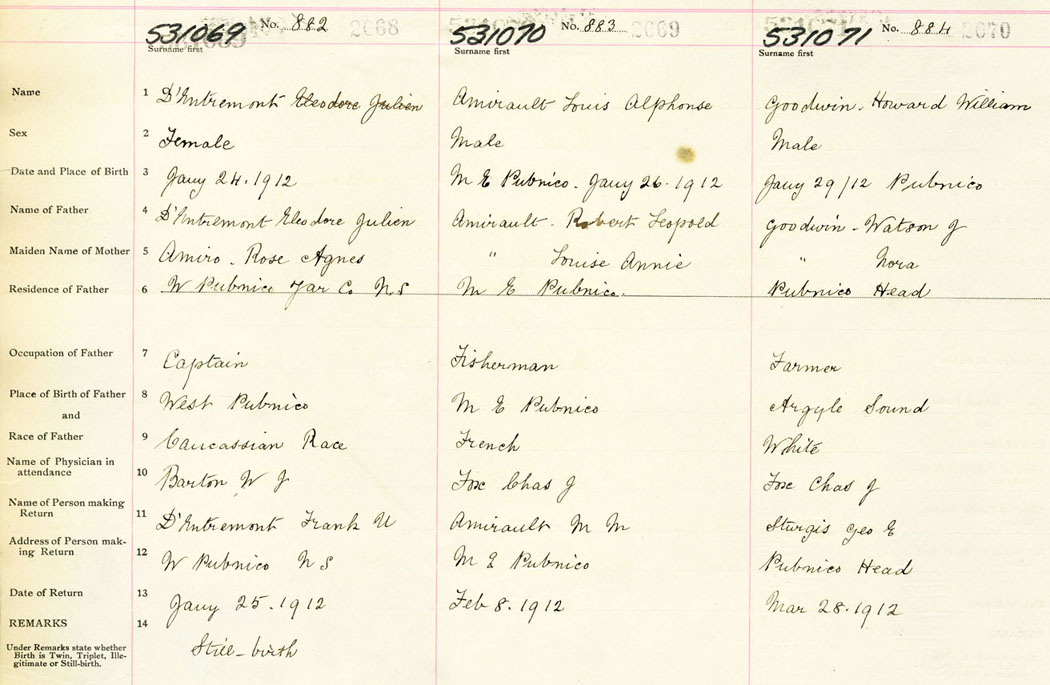 531069 No. 882 2068 531070 No. 883 2069 531071 No. 884 2070
Surname first Surname first Surname first
Name 1 D'Entremont Eleodore Julien Amirault Louis Alphonse Goodwin. Howard William
Sex 2 Female Male Male
Date and Place of Birth 3 Jany 24.1912 M E Pubnico. Jany 26.1912 Jany 29/12 Pubnico
Name of Father 4 D'Entremont Eleodore Julien Amirault. Robert Leopold Goodwin. Watson J
Maiden Name of Mother 5 Amiro. Rose Agnes " Louise Annie " Nora
Residence of Father 6 W Pubnico Yar Co N S M E Pubnico. Pubnico Head
Occupation of Father 7 Captain Fisherman Farmer
Place of Birth of Father 8 West Pubnico M E Pubnico Argyle Sound
and
Race of Father 9 Caucassian Race French White
Name of Physician in
attendance 10 Barton W J Fox Chas J Fox Chas J
Name of Person making
Return 11 D'Entremont Frank U Amirault M M Sturgis Geo E
Address of Person mak-
ing Return 12 W Pubnico N S M E Pubnico Pubnico Head
Date of Return 13 Jany 25.1912 Feb 8.1912 Mar 28.1912
REMARKS 14
Under Remarks state whether
Birth is Twin, Triplet, Ille-
gitimate or Still-birth. Still-birth